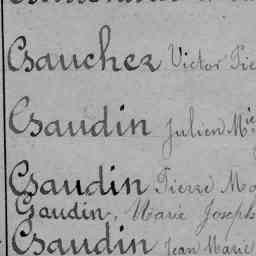 Gauchez Victor
Gaudin Julien Mie
Gaudin Pierre
Gaudin, Marie Joseph
Gaudin Jean Marie